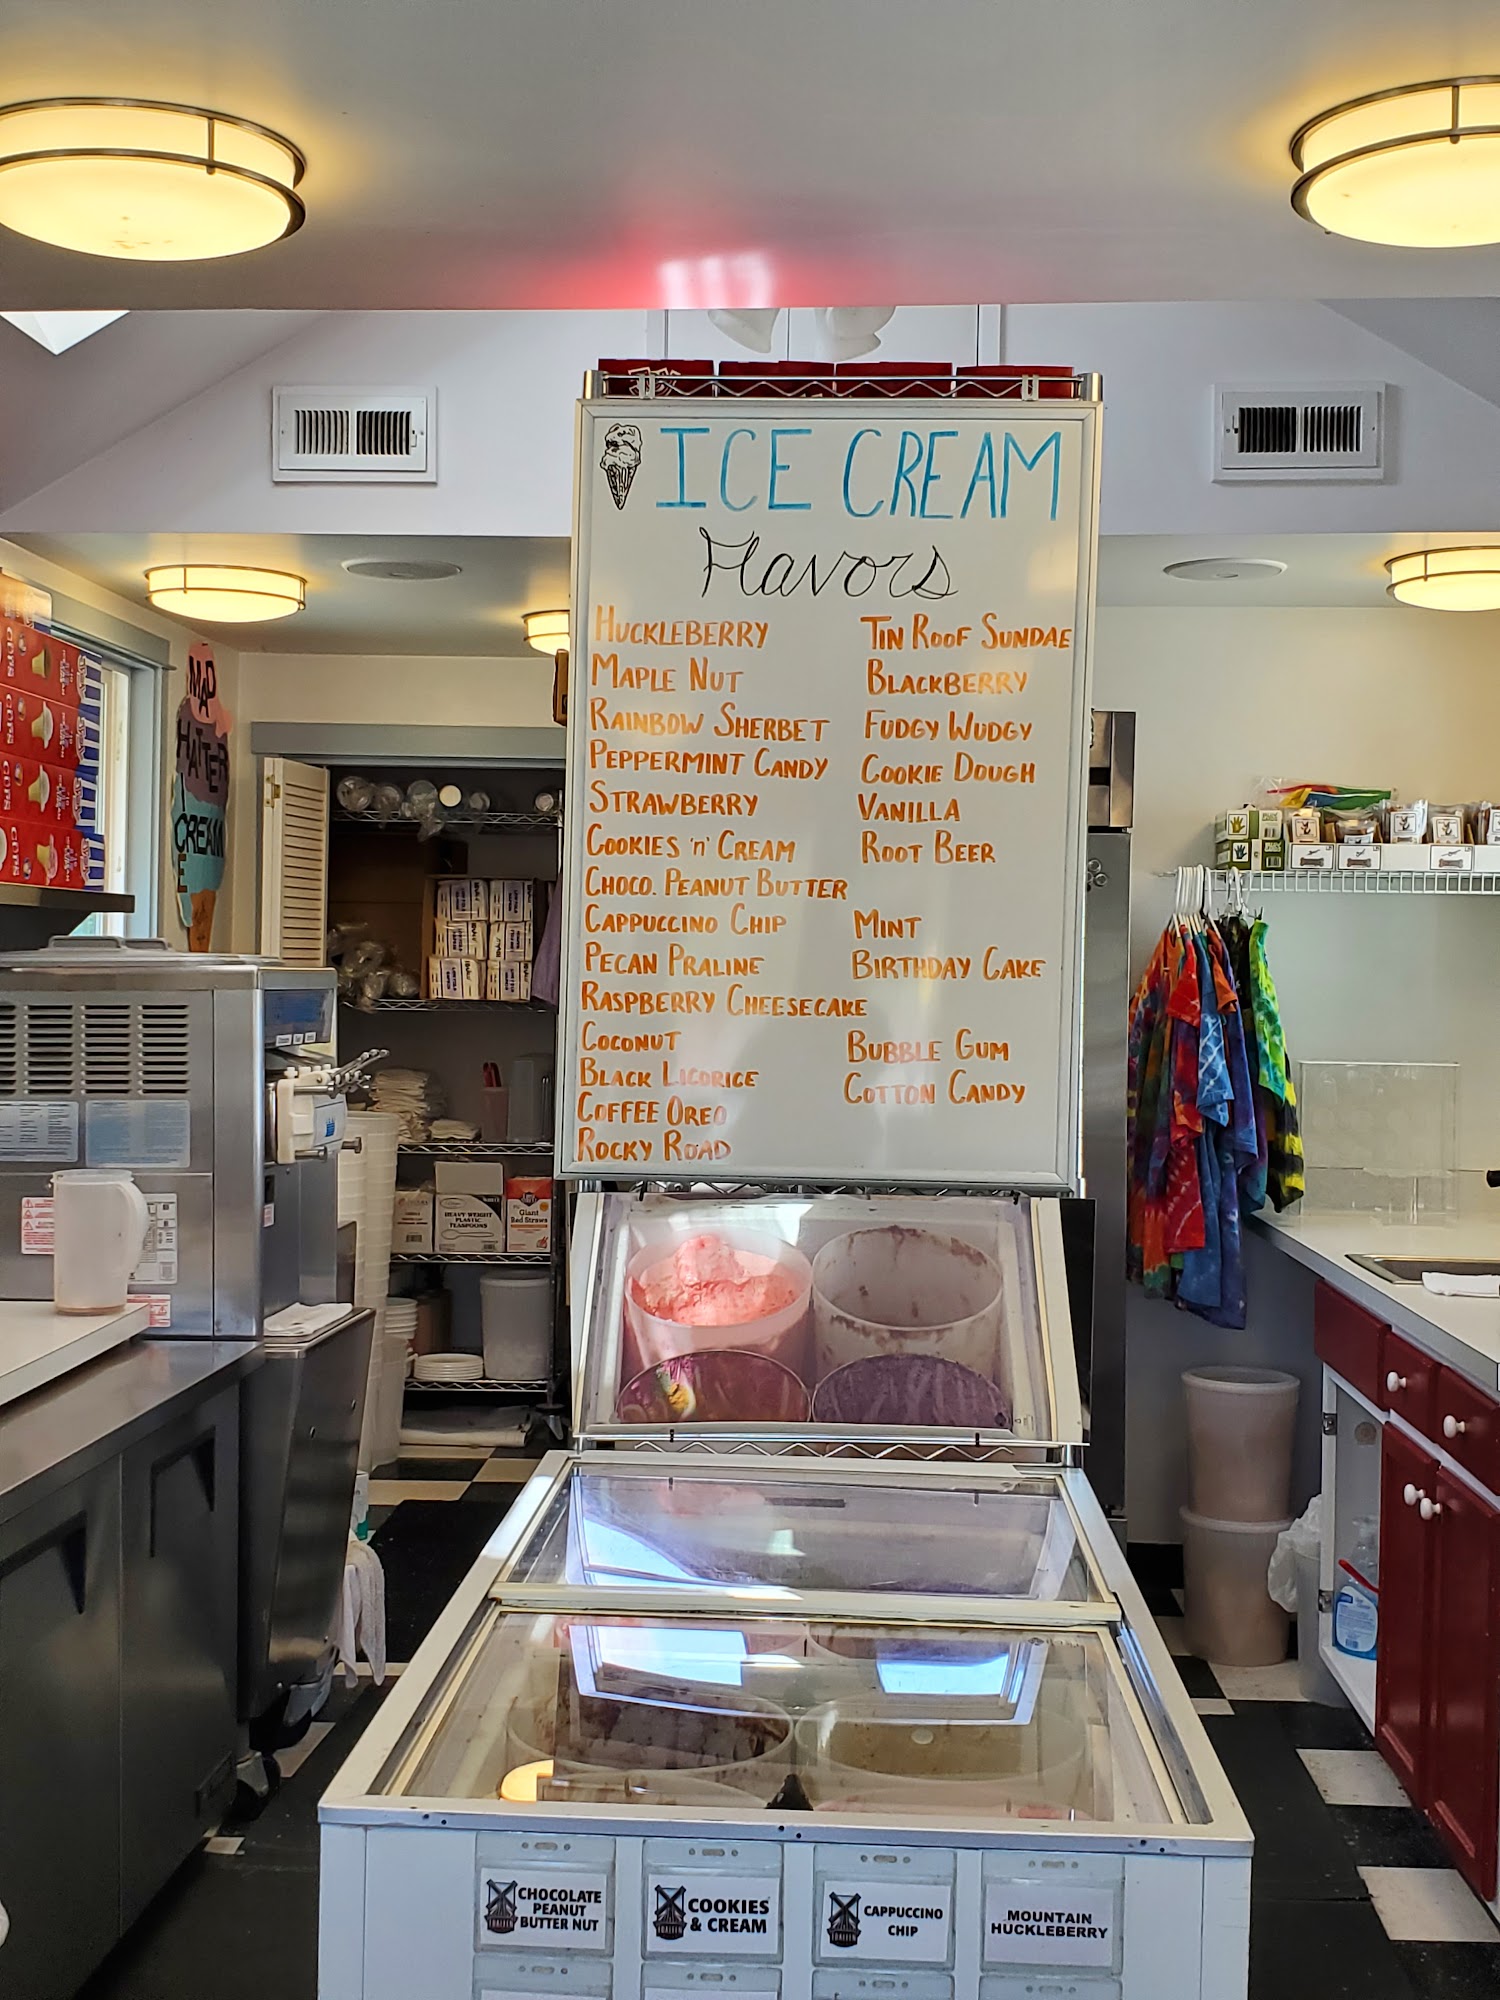 ICE CREAM
Flavors
HUCKLEBERRY
MAPLE NUT
RAINBOW SHERBET
PEPPERMINT CANDY
STRAWBERRY
COOKIES 'n' CREAM
CHOCO. PEANUT BUTTER
CAPPUCCINO CHIP
PECAN PRALINE
RASPBERRY CHEESECAKE
COCONUT
BLACK LICORICE
COFFEE OREO
ROCKY ROAD
TIN ROOF SUNDAE
BLACKBERRY
FUDGY WUDGY
COOKIE DOUGH
VANILLA
ROOT BEER
MINT
BIRTHDAY CAKE
BUBBLE GUM
COTTON CANDY
MAD
HATTER
ICE
CREAM
HEAVY WEIGHT
PLASTIC
TEASPOONS
Giant
Red Straws
CHOCOLATE
PEANUT
BUTTER NUT
COOKIES
& CREAM
CAPPUCCINO
CHIP
MOUNTAIN
HUCKLEBERRY